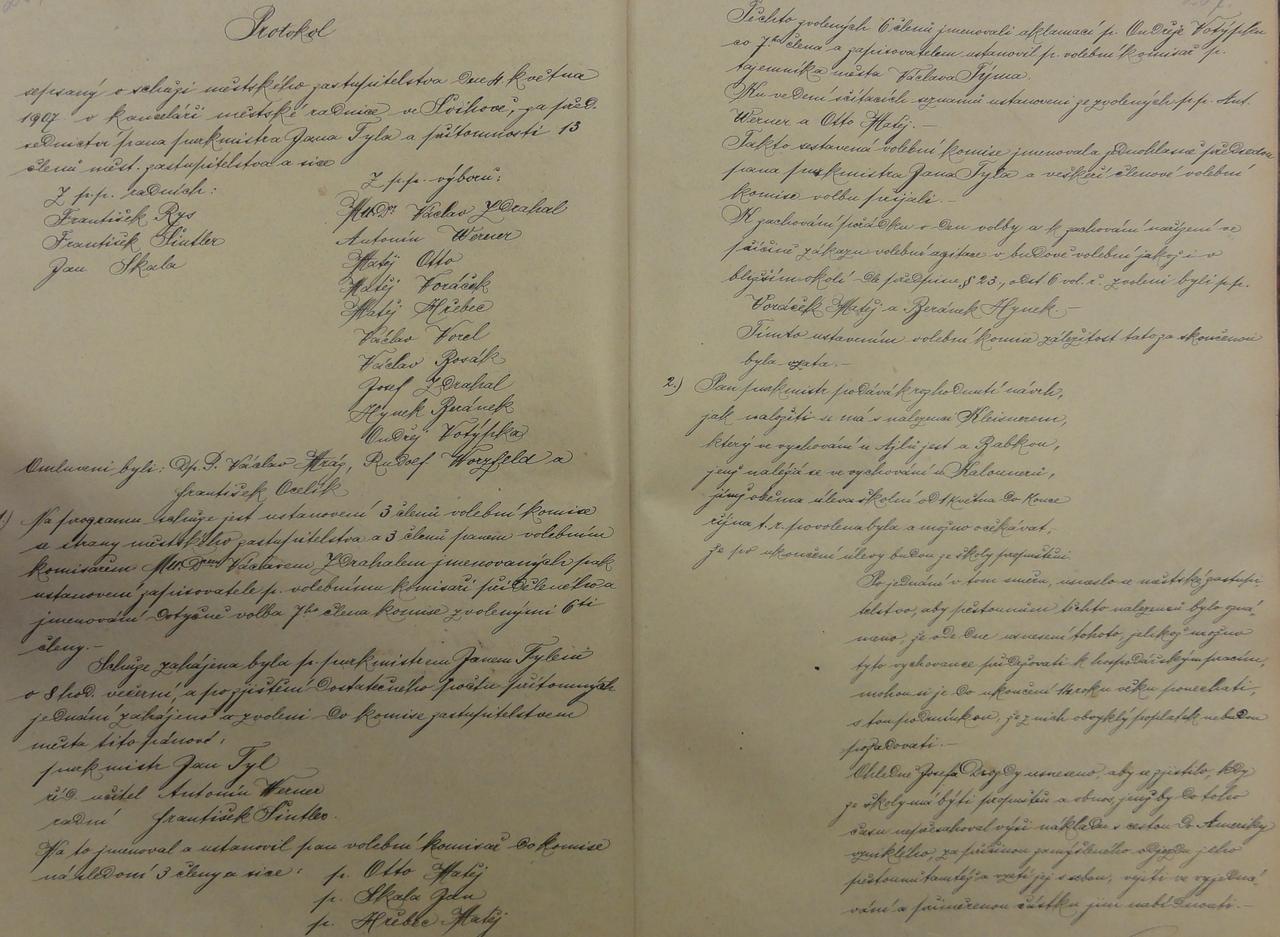 Protokol
sepsaný o schůzi městského zastupitelstva dne 4 května
1907 v kanceláři městské radnice ve Švihově, za před-
sednictví pana purkmistra Jana Tyla a přítomnosti 13
členů měst. zastupitelstva a sice
Z p.p. radních:
František Rys
František Šintler
Jan Skala
Z p.p. výborů:
MuDr Václav Zdrahal
Antonín Werner
Matěj Otto
Matěj Voráček
Matěj Hřebec
Václav Vorel
Václav Bosák
Josef Zdrahal
Hynek Beránek
Ondřej Votýpka
Omluveni byli: Dp. P. Václav Mráz, Rudolf Worzfeld a
František Ocelík
1.) Na programu schůze jest ustanovení 3 členů volební komise
se strany městského zastupitelstva a 3 členů panem volebním
komisařem MuDrem Václavem Zdrahalem jmenovaných pak
ustanovení zapisovatele p. volebnímu komisaři přiděleného a
jmenování dotyčně volba 7ho člena komise zvolenými 6ti
členy.-
Schůze zahájena byla p. purkmistrem Janem Tylem
o 8 hod. večerní, a po zjištění dostatečného počtu přítomných
jednání zahájeno a zvoleni do komise zastupitelstvem
města tito pánové:
purkmistr Jan Tyl
říd. učitel Antonín Werner
radní František Šintler.
Na to jmenoval a ustanovil pan volební komisař do komise
následovní 3 členy a sice: p. Otto Matěj
p. Skala Jan
p. Hřebec Matěj
Těchto zvolených 6 členů jmenovali aklamací p. Ondřeje Votýpku
co 7ho člena a zapisovatelem ustanovil p. volební komisař p.
tajemníka města Václava Týma.
Ku vedení sčítacích seznamů ustanoveni ze zvolených p.p. Ant.
Werner a Otto Matěj.-
Takto sestavená volební komise jmenovala jednohlasně předsedou
pana purkmistra Jana Tyla a veškeří členové volební
komise volbu přijali.-
K zachování pořádku v den volby a k zachování nařízení ve
příčině zákazu volební agitace v budově volební jakož i v
bližším okolí dle předpisu § 23., odst 6 vol. ř. zvoleni byli p.p.
Voráček Matěj a Beránek Hynek.-
Tímto ustavením volební komise záležitost tato za skončenou
byla vzata.-
2.) Pan purkmistr podává k rozhodnutí návrh,
jak naložiti se má s nalezenci Kleisnerem,
který ve vychování u Ajlů jest a Babkou,
jenž nalézá se ve vychování u Kalounerů,
jimž oběma úleva školní od 1 května do konce
října t.r. povolena byla a možno očekávat,
že po ukončení úlevy budou ze školy propuštěni.
Po jednání v tom směru, usneslo se městské zastupi-
telstvo, aby pěstounům těchto nalezenců bylo ozná-
meno, že ode dne usnesení tohoto, jelikož možno
tyto vychovance přidržovati k hospodářským pracím,
mohou si je do ukončení 14 roku věku ponechati,
s tou podmínkou, že z nich obvyklý poplatek nebudou
požadovati.-
Ohledně Josefa Drozdy usneseno, aby se zjistilo, kdy
ze školy má býti propuštěn a obnos, jenž by do toho
času nepřesahoval výši nákladu s cestou do Ameriky
vzniklého, za příčinou zamýšleného odjezdu jeho
pěstounů tamtéž a vzetí jej s sebou, vejíti ve vyjedná-
vání a přiměřenou částku jim nabídnouti.-